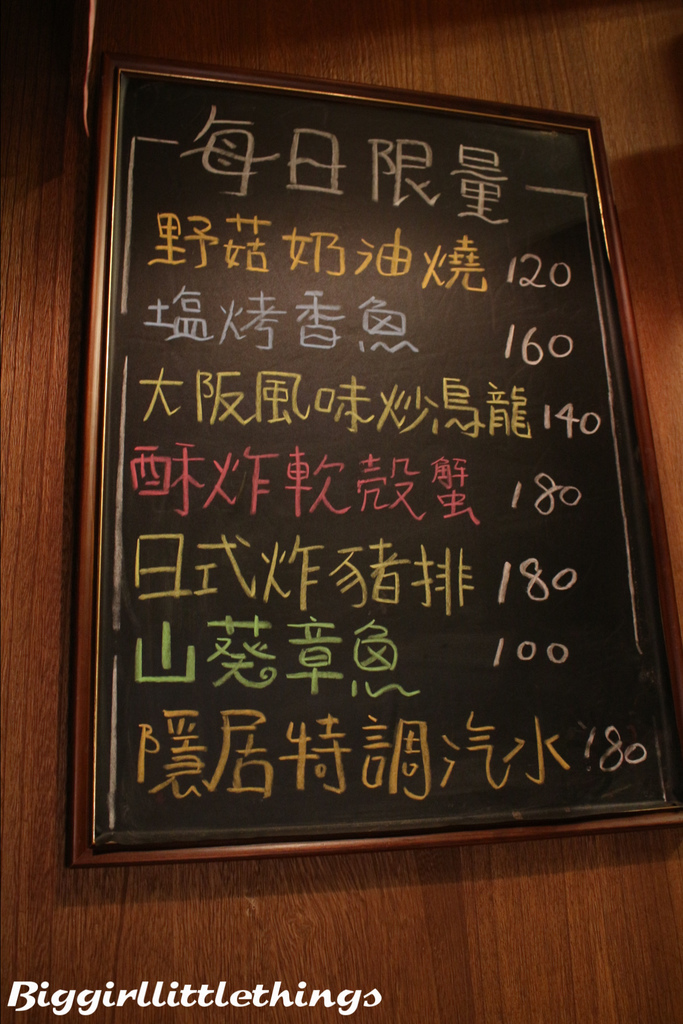 每日限量
野菇奶油燒 120
塩烤香魚 160
大阪風味炒烏龍 140
酥炸軟殼蟹 180
日式炸豬排 180
山葵章魚 100
隱居特調汽水 180
Biggirllittlethings